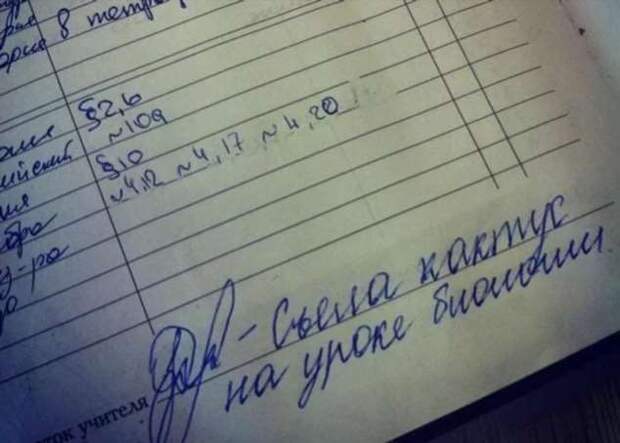 8 тетр
§2,6
№109
§10
№4,12 №4,17 №4,20
- Съела кактус
на уроке биологии
учителя